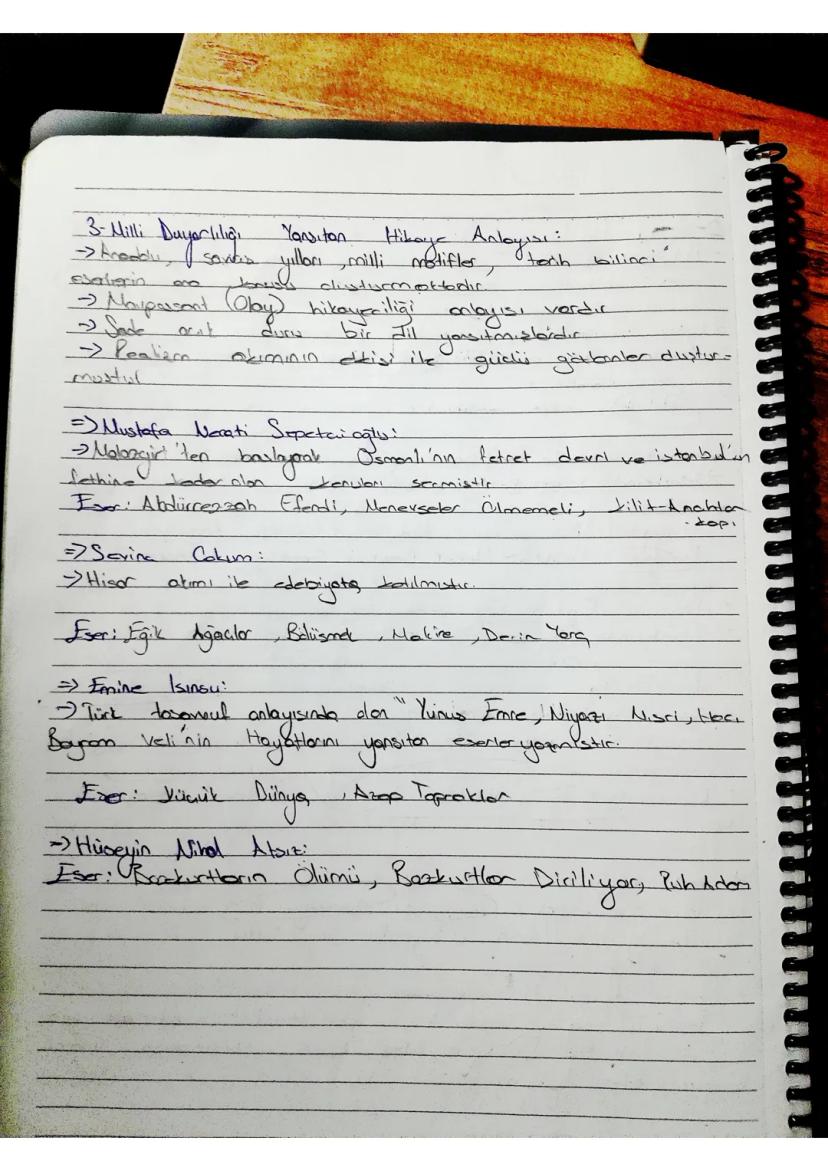 3-Milli Duyarlılığı Yansıtan Hikaye Anlayışı:
→ Anadolu, savaş yılları, milli motifler, tarih bilinci
eserlerin ana konusu oluşturmaktadır
→ Maupassant (Olay) hikayeciliği anlayışı vardır
→ Sade açık duru bir dil yansıtmışlardır
→ Realizm akımının etkisi ile güçlü gözlemler oluştur=
muştur
=> Mustafa Necati Sepetçioğlu:
→ Malazgirt'ten başlayarak Osmanlı'nın fetret devri ve istanbul'un
fethine kadar olan konuları sermiştir
Eser: Abdürrezzah Efendi, Menevşeler Ölmemeli, Kilit-Anahtar
-kapı
=> Sevinç Çokum:
→ Hisar akımı ile edebiyata katılmıştır.
Eser: Eğik Ağaçlar, Bölüşmek, Makine, Derin Yara
=> Emine Işınsu:
→ Türk tasavvuf anlayışında olan "Yunus Emre, Niyazi Mısri, Hacı
Bayram Veli'nin Hayatlarını yansıtan eserler yazmıştır.
Eser: Küçük Dünya, Azap Toprakları
→ Hüseyin Nihal Atsız:
Eser: Bozkurtların Ölümü, Bozkurtlar Diriliyor, Ruh Adam